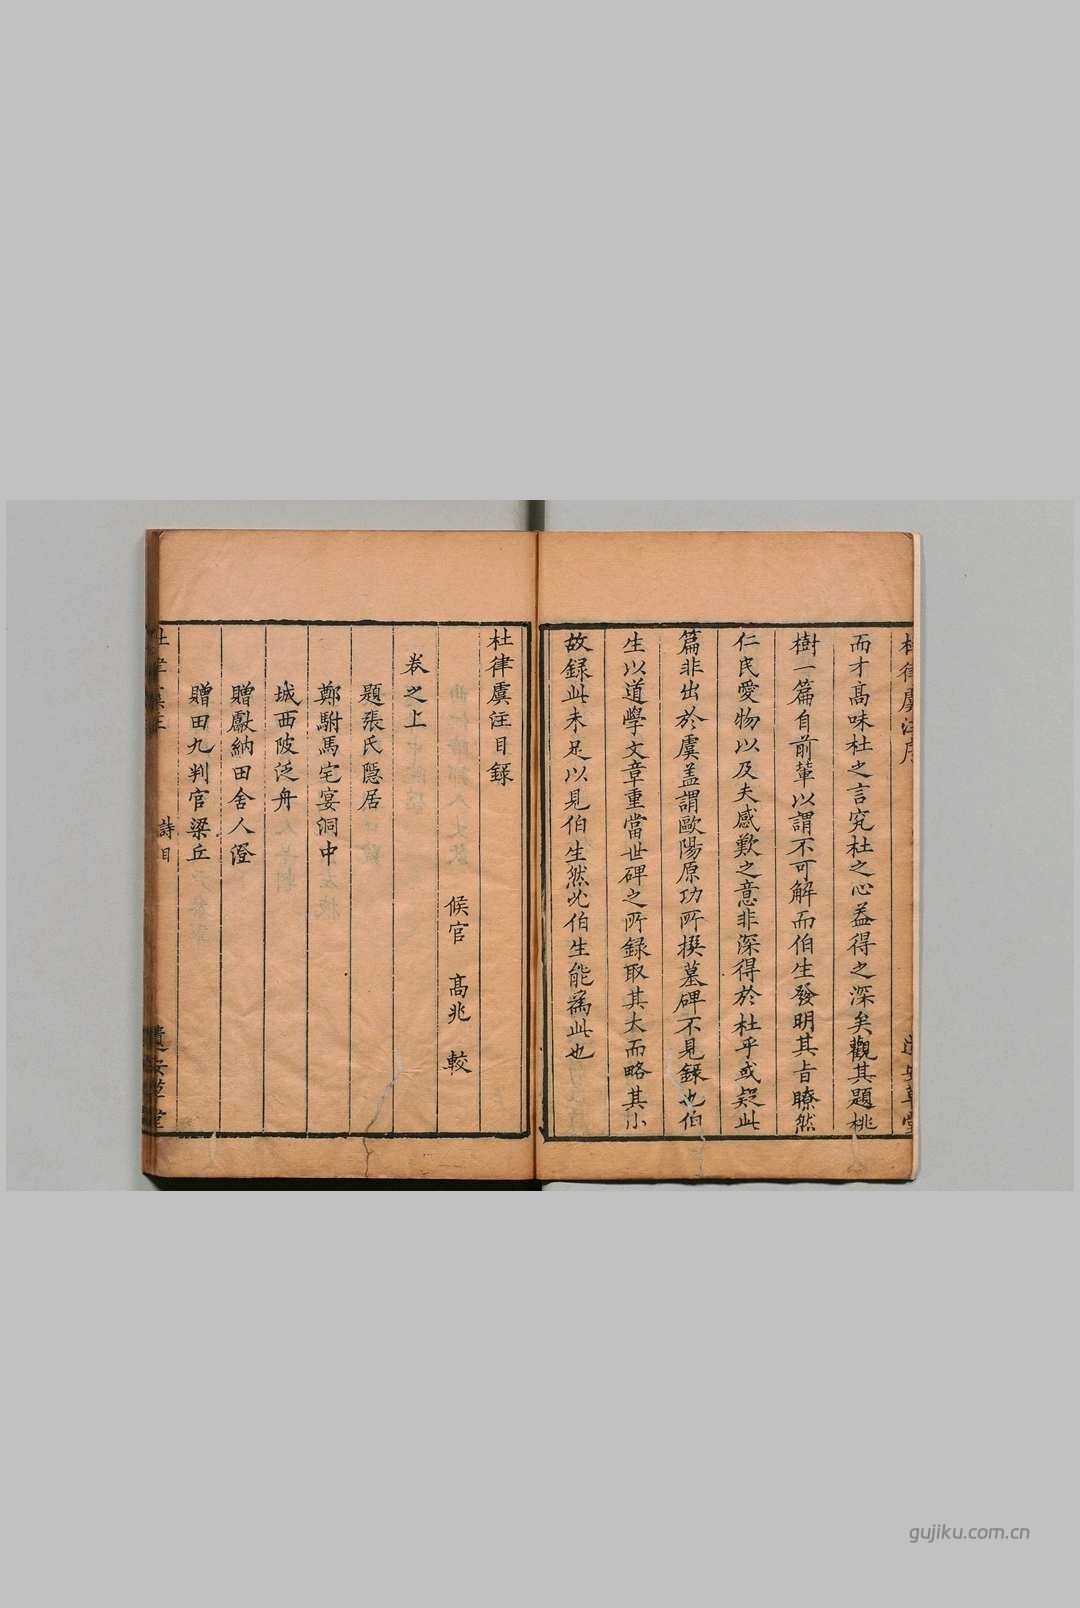 杜律虞注序
而才高味杜之言究杜之心益得之深矣觀其題桃
樹一篇自前輩以謂不可解而伯生發明其旨瞭然
仁民愛物以及夫感歎之意非深得於杜乎或疑此
篇非出於虞盖謂歐陽原功所撰墓碑不見錄也伯
生以道學文章重當世碑之所錄取其大而略其小
故錄此未足以見伯生然必伯生能爲此也
杜律虞注目録
候官 高兆 較
卷之上
題張氏隱居
鄭駙馬宅宴洞中
城西陂泛舟
贈獻納田舍人澄
贈田九判官梁丘
杜律虞注 詩目
gujiku.com.cn